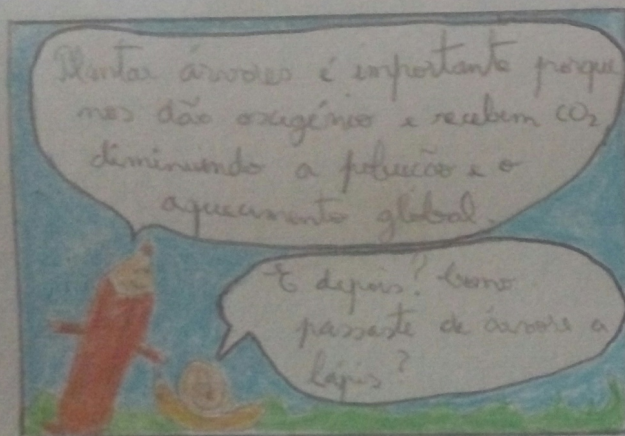 Plantar árvores é importante porque
nos dão oxigénio e recebem CO2
diminuindo a poluição e o
aquecimento global.
E depois? Como
passaste de árvore a
lápis?